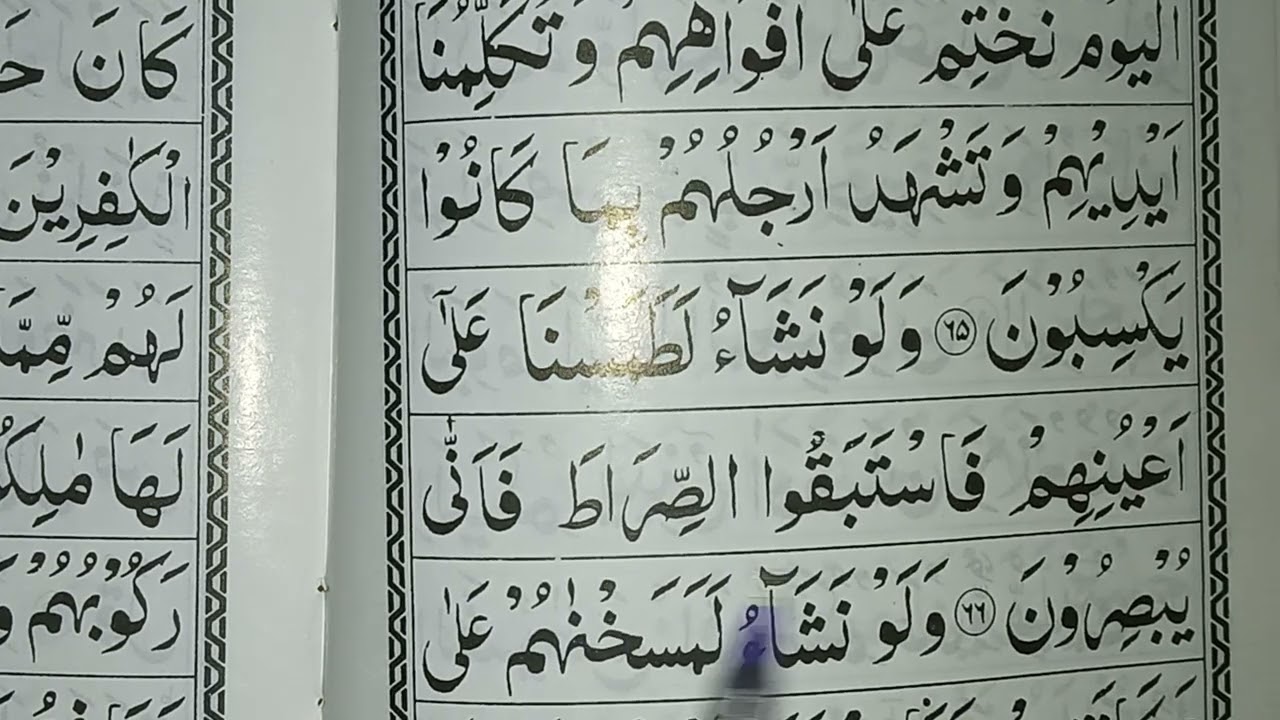 اَلْيَوْمَ نَخْتِمُ عَلٰٓى اَفْوَاهِهِمْ وَتُكَلِّمُنَآ
اَيْدِيْهِمْ وَتَشْهَدُ اَرْجُلُهُمْ بِمَا كَانُوْا
يَكْسِبُوْنَ ﴿۶۵﴾ وَلَوْ نَشَآءُ لَطَمَسْنَا عَلٰٓى
اَعْيُنِهِمْ فَاسْتَبَقُوا الصِّرَاطَ فَاَنّٰى
يُبْصِرُوْنَ ﴿۶۶﴾ وَلَوْ نَشَآءُ لَمَسَخْنٰهُمْ عَلٰى
كَانَ
الْكٰفِرِيْنَ
لَهُمْ مِّمَّا
لَهَا
رَكُوْبُهُمْ وَ